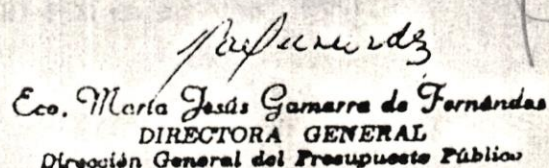 Eco. María Jesús Gamarra de Fernández
DIRECTORA GENERAL
Dirección General del Presupuesto Público